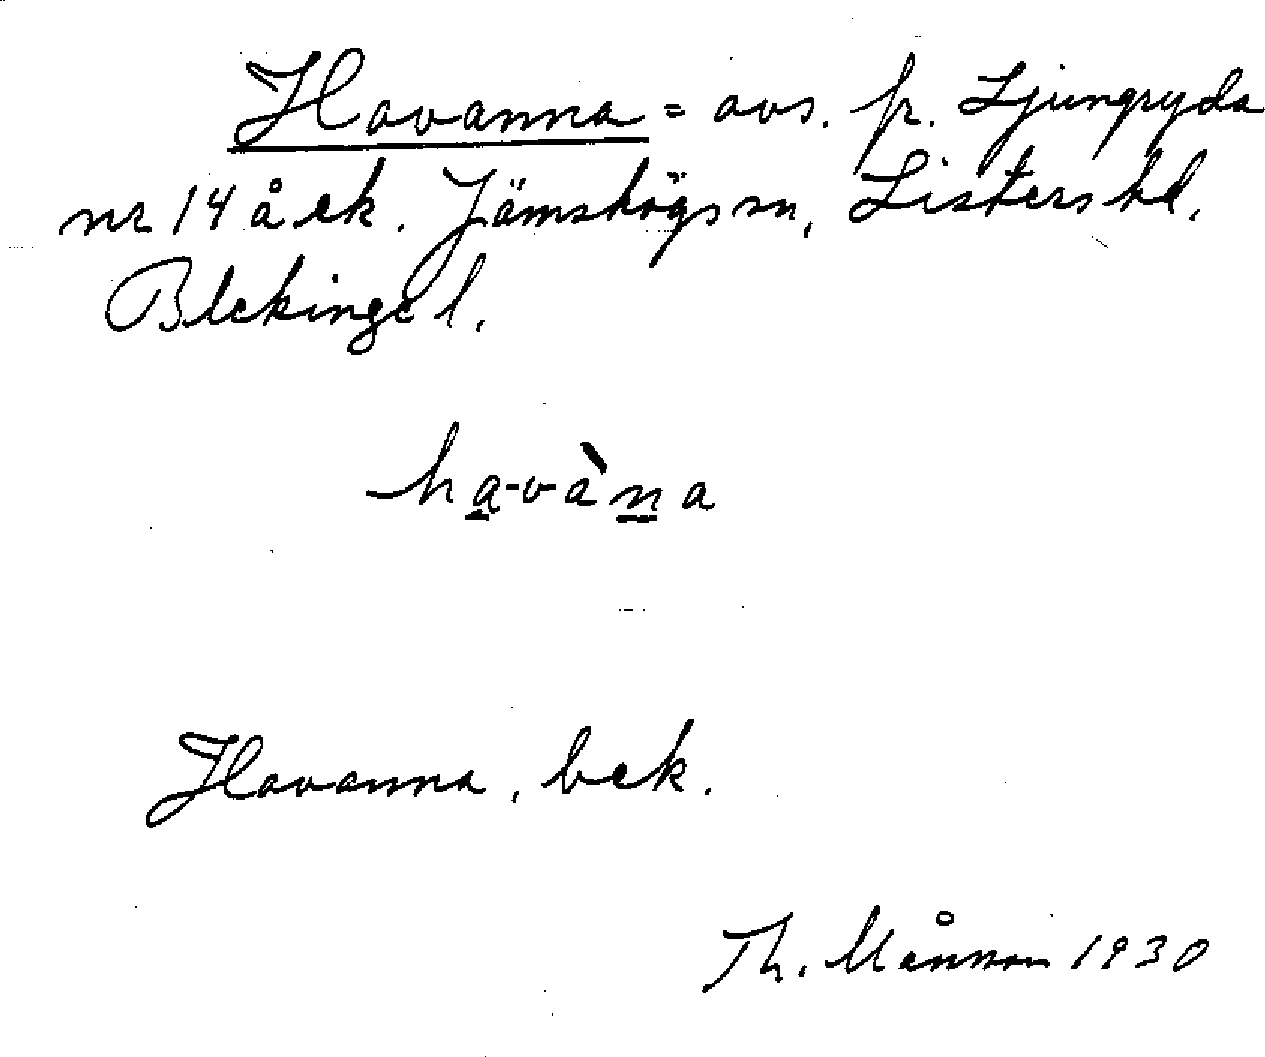 Havanna = avs. fr. Ljungryda
nr 14 å ek. Jämshögs sn, Listers hd.
Blekinge l.
havàna
Havanna, bek.
Th. Månsson 1930